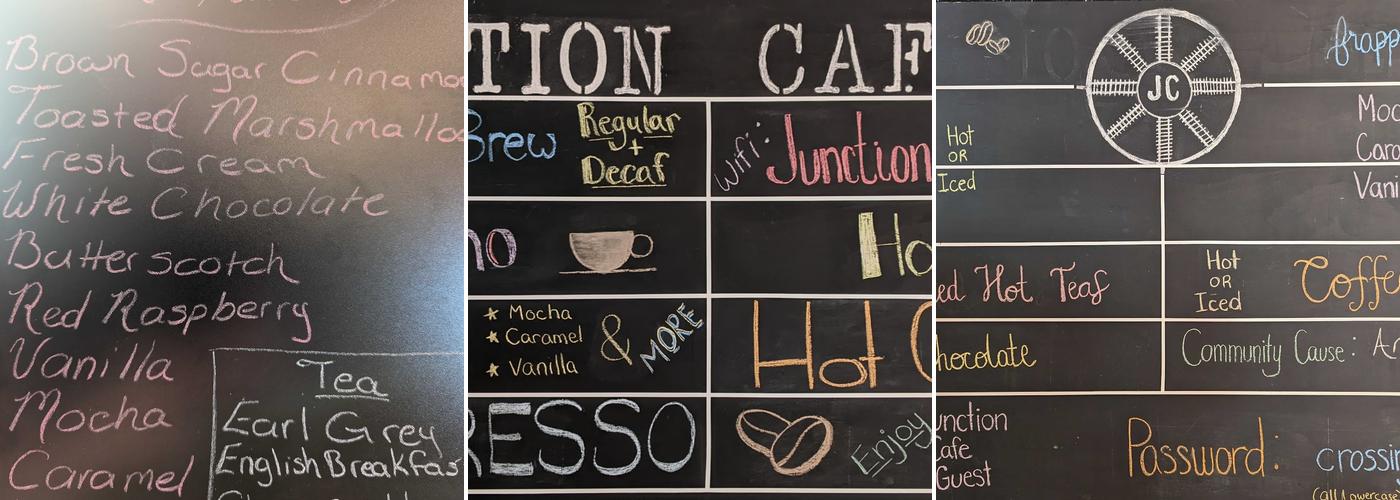 Brown Sugar Cinnamo
Toasted Marshmallo
Fresh Cream
White Chocolate
Butterscotch
Red Raspberry
Vanilla
Mocha
Caramel
Tea
Earl Grey
English Breakfas
TION CAF
Brew
Regular
+
Decaf
Wifi: Junction
no
Ho
★ Mocha
★ Caramel
★ Vanilla
& MORE
Hot C
RESSO
Enjoy
JC
frapp
Hot
OR
Iced
Moc
Cara
Vani
ed Hot Teas
Hot
OR
Iced
Coffe
hocolate
Community Cause: Ar
unction
Cafe
Guest
Password: crossin
(all lowercas